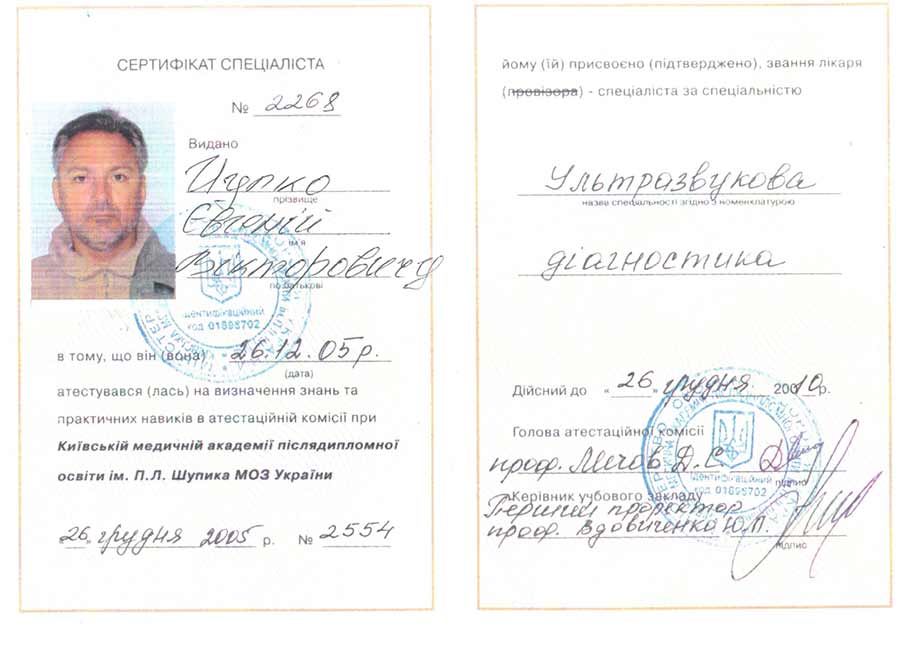 СЕРТИФІКАТ СПЕЦІАЛІСТА
№ 2268
Видано
прізвище
Євгеній
ім'я
Вікторовичу
по батькові
ідентифікаційний
код 01896702
в тому, що він (вона) 26.12.05р.
(дата)
атестувався (лась) на визначення знань та
практичних навиків в атестаційній комісії при
Київській медичній академії післядипломної
освіти ім. П.Л. Шупика МОЗ України
26 грудня 2005 р. № 2554
йому (їй) присвоєно (підтверджено), звання лікаря
(провізора) - спеціаліста за спеціальністю
Ультразвукова
назва спеціальності згідно з номенклатурою
діагностика
Дійсний до «26» грудня 20010р.
Голова атестаційної комісії
проф. Д.С.
підпис
Керівник учбового закладу
Перший проректор
проф. Вдовиченко Ю.П.
підпис
ідентифікаційний
код 01896702